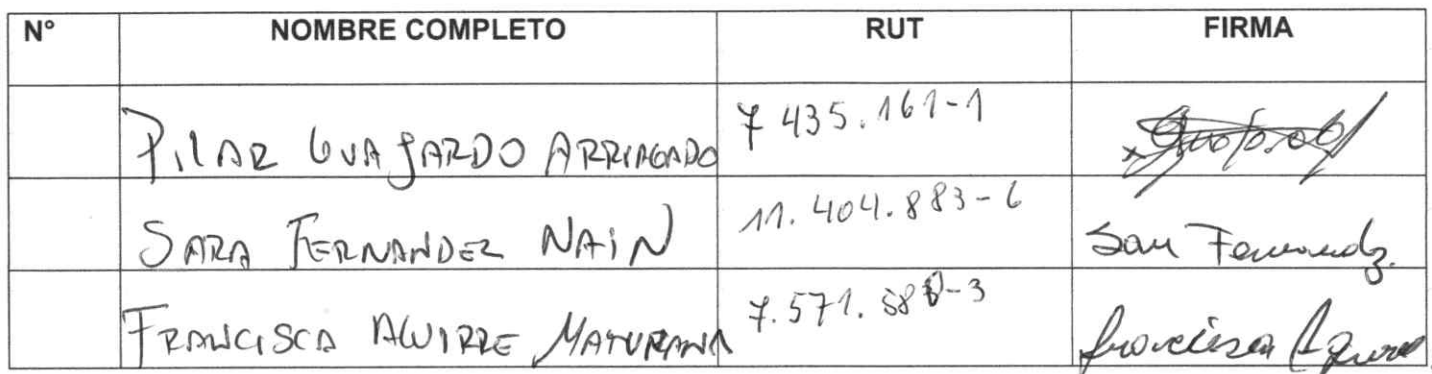 N° NOMBRE COMPLETO RUT FIRMA
PILAR GUAJARDO ARRIAGADO 7 435.161-1
SARA FERNANDEZ NAIN 11.404.883-6 Sara Fernandz.
FRANCISCA AGUIRRE MATURANA 7.571. Francisca Aguirre